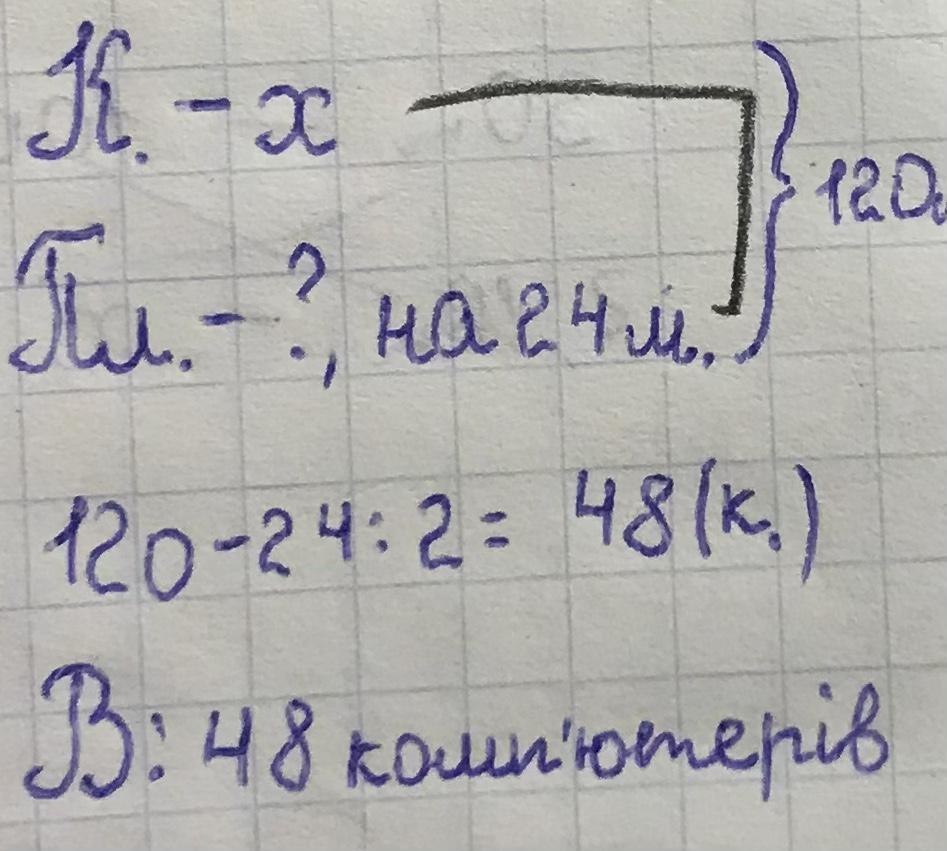 К. - х
120.
Пл. - ?, на 24 м.
120-24:2= 48 (к.)
В: 48 комп'ютерів